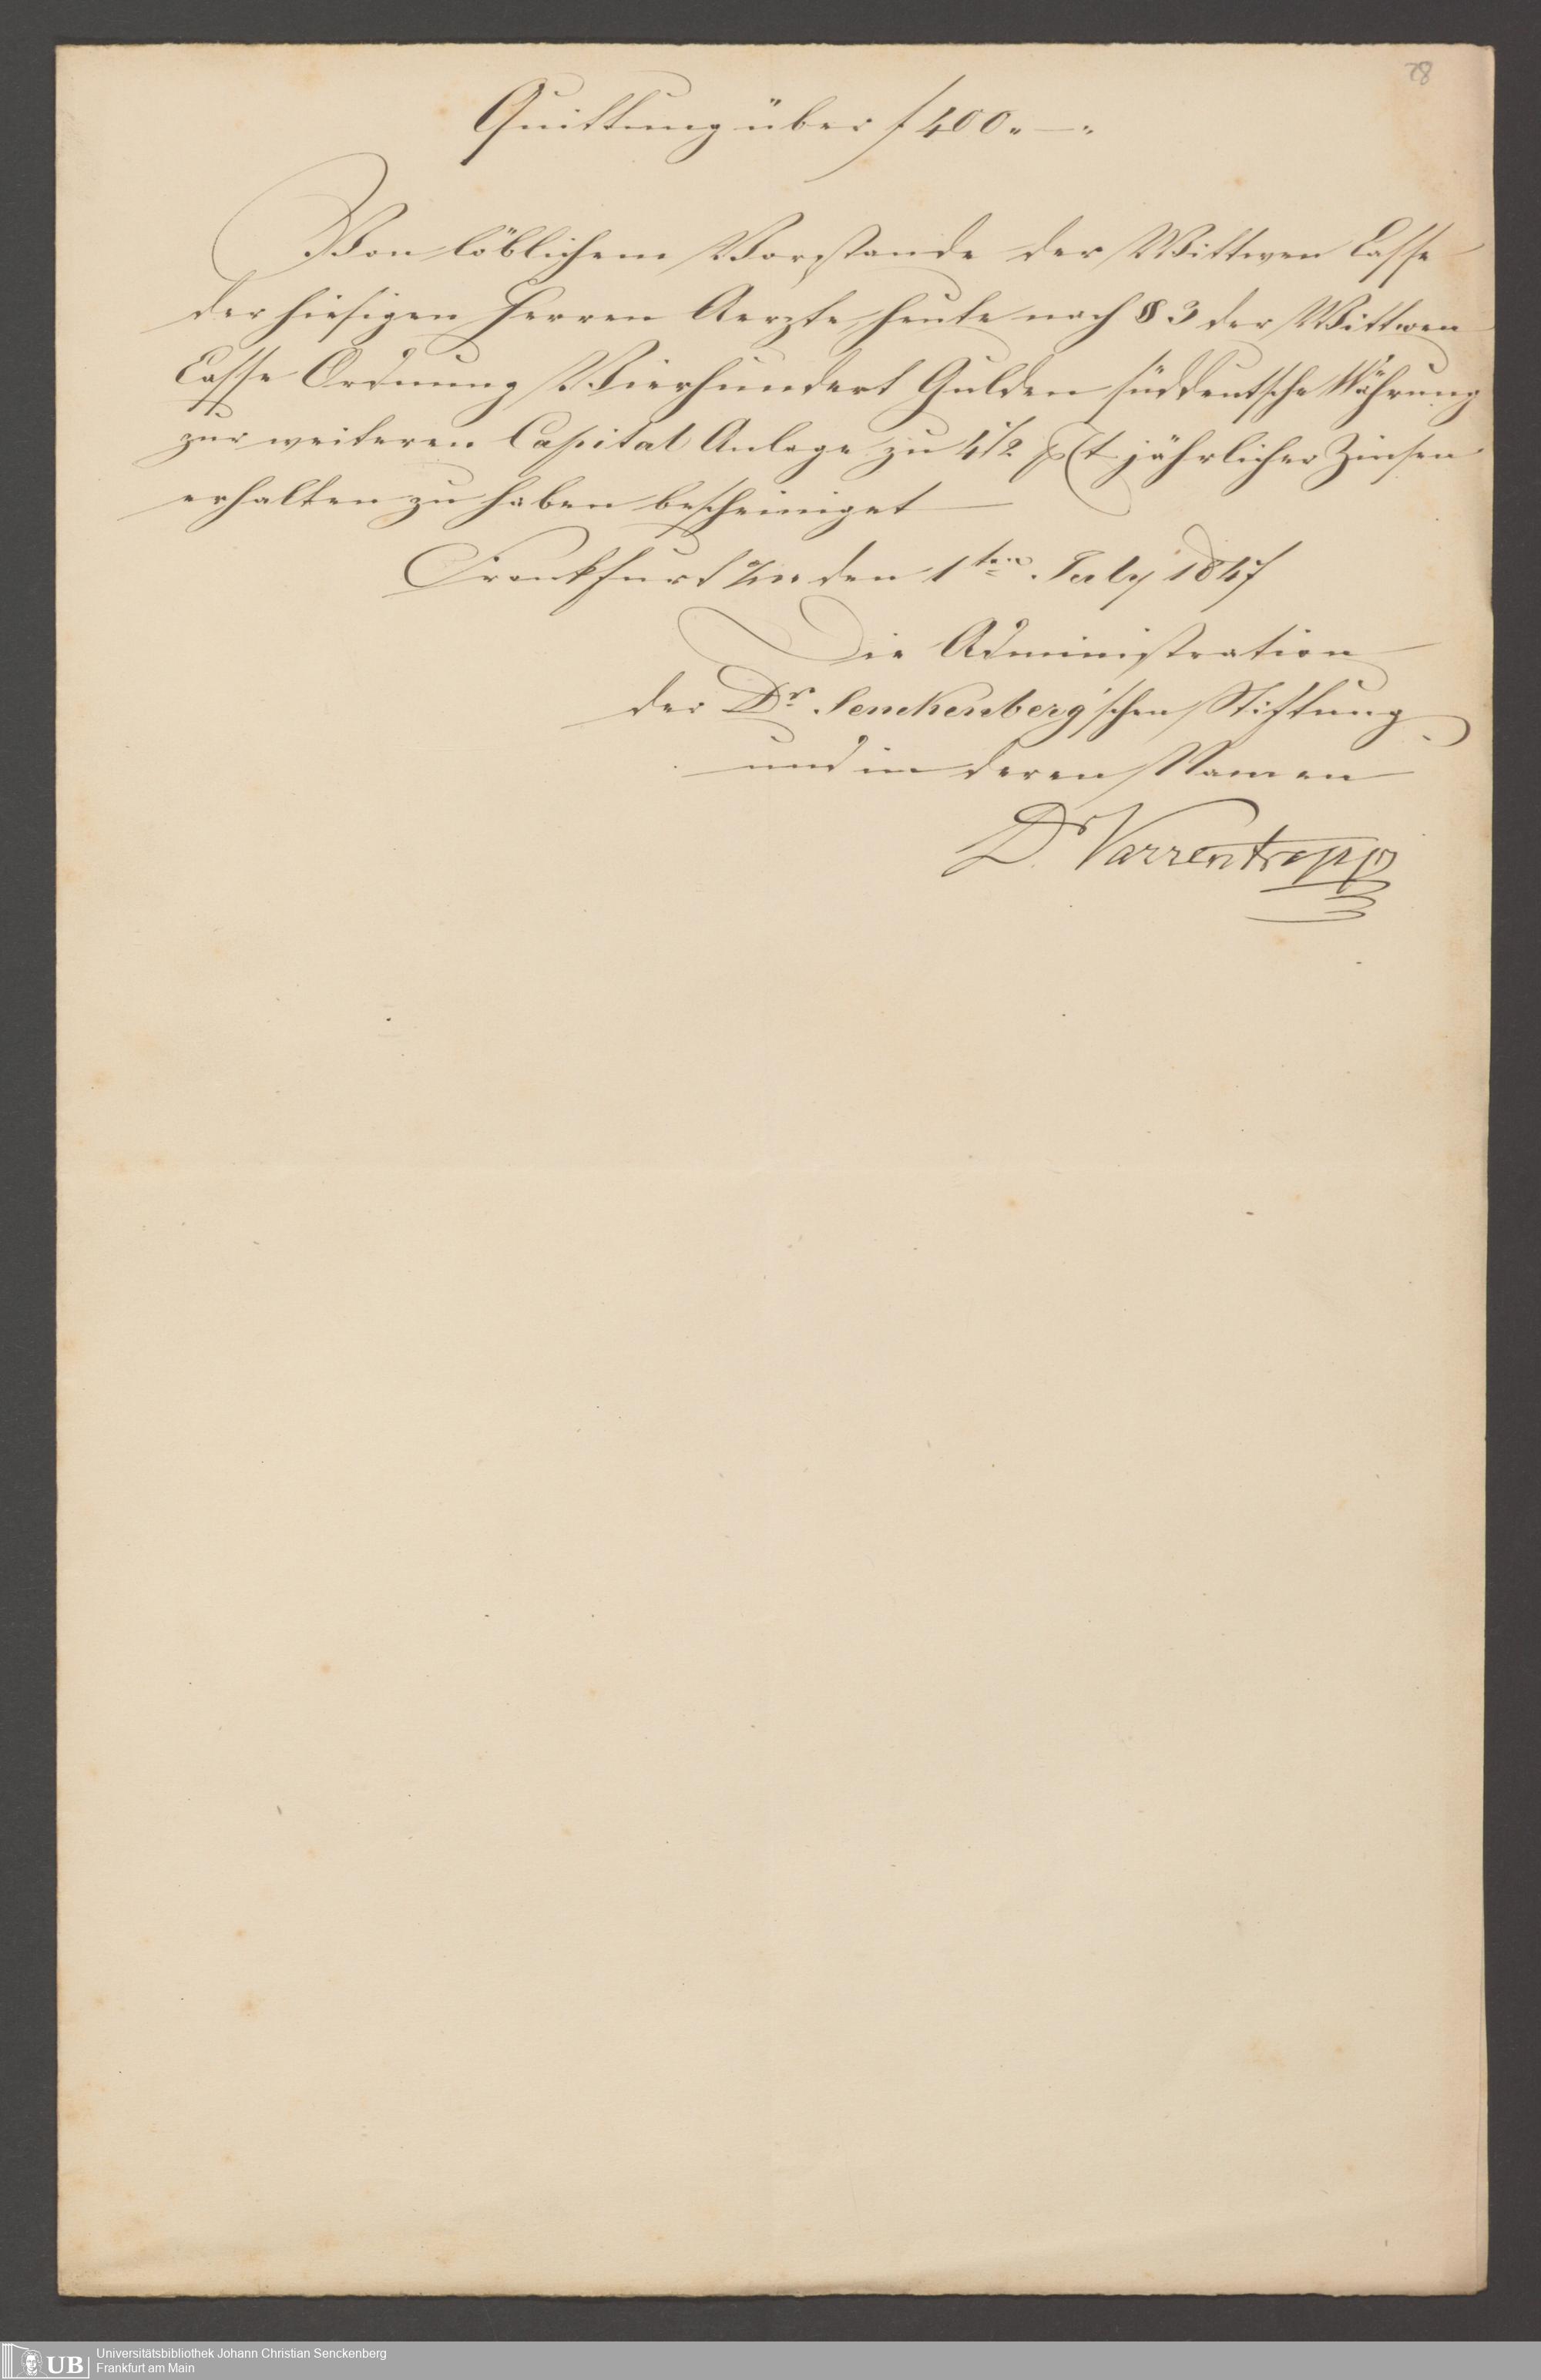 78
Quittung über f 400. — .
Von löblichem Vorstande der Wittwen Casse
der hiesigen Herren Aerzte, heute nach § 3 der Wittwen
Casse Ordnung Vierhundert Gulden süddeutsche Währung
zur weiteren Capital Anlage zu 4 1/2 pCt jährlicher Zinsen
erhalten zu haben bescheiniget
Frankfurt a/m den 1ten July 1847
Die Administration
der Dr. Senckenberg'schen Stiftung
und in deren Namen
Dr. Varrentrapp
Universitätsbibliothek Johann Christian Senckenberg
UB
Frankfurt am Main